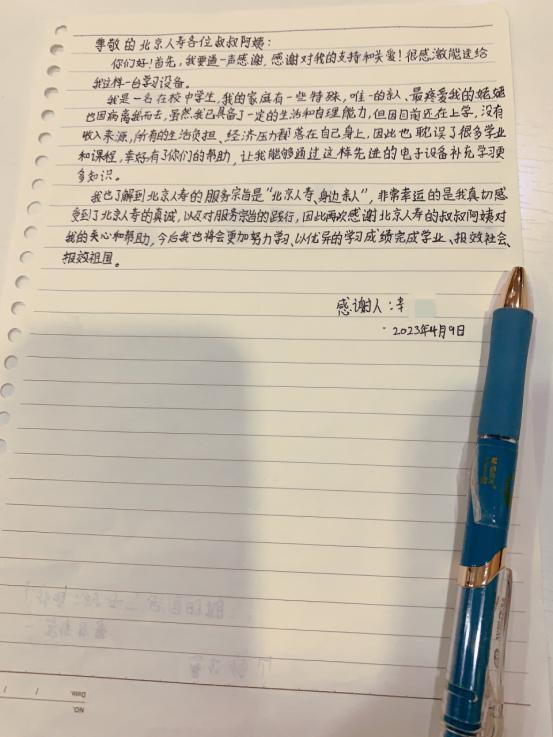 尊敬的北京人寿各位叔叔阿姨：
你们好！首先，我要道一声感谢，感谢对我的支持和关爱！很感激能送给
我这样一台学习设备。
我是一名在校中学生，我的家庭有一些特殊，唯一的亲人、最疼爱我的姥姥
也因病离我而去，虽然我已具备了一定的生活和自理能力，但因目前还在上学，没有
收入来源，所有的生活负担、经济压力都落在自己身上，因此也耽误了很多学业
和课程，幸好有了你们的帮助，让我能够通过这样先进的电子设备补充学习更
多知识。
我也了解到北京人寿的服务宗旨是“北京人寿、身边亲人”，非常幸运的是我真切感
受到了北京人寿的真诚，以及对服务宗旨的践行，因此再次感谢北京人寿的叔叔阿姨对
我的关心和帮助，今后我也将会更加努力学习、以优异的学习成绩完成学业、报效社会、
报效祖国。
感谢人：李
2023年4月9日
Date.
NO.